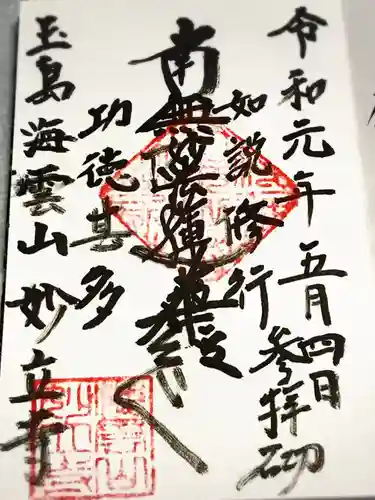 令和元年五月四日参拝砌
如説修行
南無妙法蓮華経
功徳甚多
玉島海雲山妙立寺